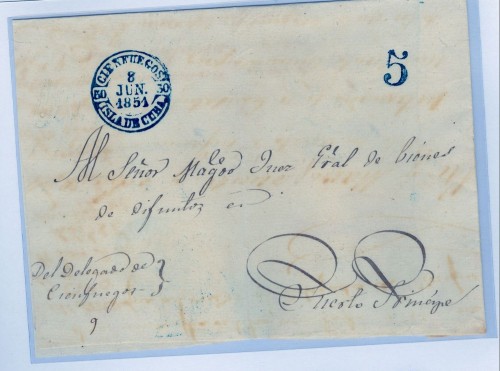 CIENFUEGOS
8
JUN.
1851
30 30
ISLA DE CUBA
5
Al Señor Juez Gral de bienes
de difuntos en
Puerto Príncipe
Del Delegado de
Cienfuegos
9